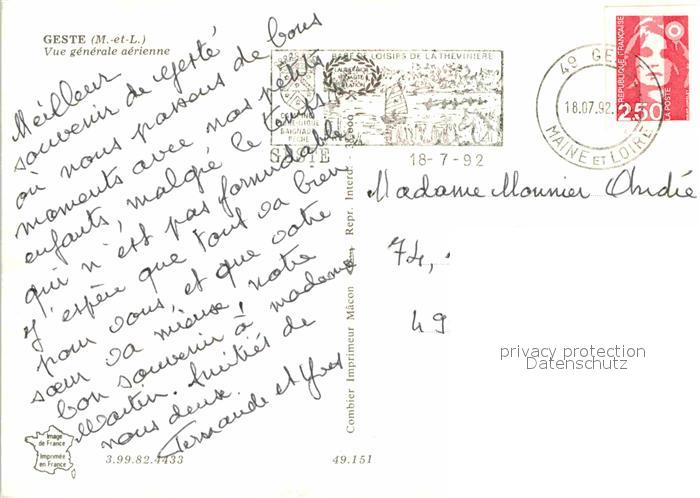 GESTE (M.-et-L.)
Vue générale aérienne
Meilleur
souvenir de Gesté
où nous passons de bons
moments avec nos petits
enfants, malgré le temps
qui n'est pas formidable
J'espère que tout va bien
pour vous, et que votre
sœur va mieux, notre
bon souvenir à madame
Martin. Amitiés de
nous deux.
Fernande et Yves
Image
de France
Imprimée
en France
3.99.82.4433
49.151
Combier Imprimeur Mâcon
Repr. Interd.
BASE DE LOISIRS DE LA THÉVINIÈRE
BAIGNADE
PÊCHE
18-7-92
49 GE
18.07.92
MAINE ET LOIRE
RÉPUBLIQUE FRANÇAISE
LA POSTE
2,50
Madame Monnier Andrée
74,
49
privacy protection
Datenschutz